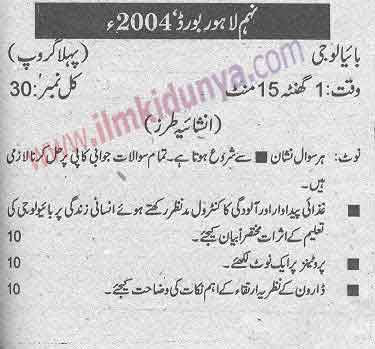 نہم لاہور بورڈ، 2004ء
بائیالوجی (پہلا گروپ)
وقت: 1 گھنٹہ 15 منٹ کل نمبر: 30
(انشائیہ طرز)
نوٹ: ہر سوال نشان ■ سے شروع ہوتا ہے۔ تمام سوالات جوابی کاپی پر حل کرنا لازمی
ہیں۔
■ غذائی پیداوار اور آلودگی کا کنٹرول مدنظر رکھتے ہوئے انسانی زندگی پر بائیالوجی کی
تعلیم کے اثرات مختصراً بیان کیجئے۔ 10
■ پروٹینز پر ایک نوٹ لکھئے۔ 10
■ ڈارون کے نظریہ ارتقاء کے اہم نکات کی وضاحت کیجئے۔ 10
www.ilmkidunya.com